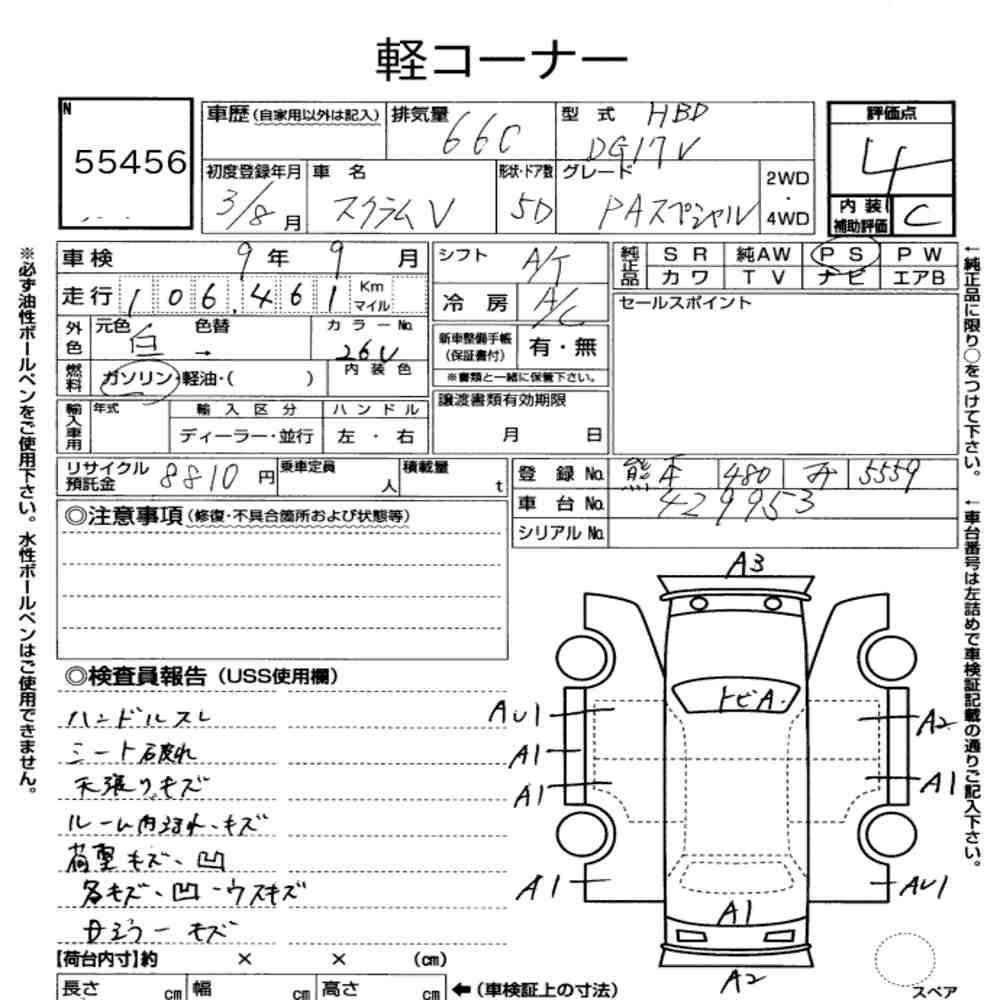 軽コーナー
N
55456
車歴 (自家用以外は記入)
排気量 660
型式 HBD
DG17V
評価点
4
初度登録年月 3/8月
車名 スクラムV
形状・ドア数 5D
グレード PAスペシャル
2WD
・
4WD
内装
補助評価 C
車検 9年9月
走行 106,461 Km
マイル
外色 元色 白 色替 →
カラーNo. 26U
燃料 ガソリン・軽油・( )
内装色
輸入車用 年式 輸入区分 ハンドル
ディーラー・並行 左・右
リサイクル預託金 8810円
乗車定員 人
積載量 t
シフト A/T
冷房 A/C
新車整備手帳
(保証書付) 有・無
※書類と一緒に保管下さい。
譲渡書類有効期限
月 日
純正品 SR 純AW PS PW
カワ TV ナビ エアB
セールスポイント
登録No. 熊本 480 5559
車台No. 429953
シリアルNo.
◎注意事項 (修復・不具合箇所および状態等)
◎検査員報告 (USS使用欄)
ハンドルスレ
シート破れ
天張り、キズ
ルーム内汚れ、キズ
荷室キズ、凹
各キズ・凹・ウスキズ
キズ
【荷台内寸】約 × × (cm)
長さ cm 幅 cm 高さ cm ←(車検証上の寸法)
A3
トビA
AU1
A2
A1
A1
A1
A1
AU1
A1
A2
スペア
※必ず油性ボールペンをご使用下さい。水性ボールペンはご使用できません。
←純正品に限り○をつけて下さい。
←車台番号は左詰めで車検証記載の通りご記入下さい。